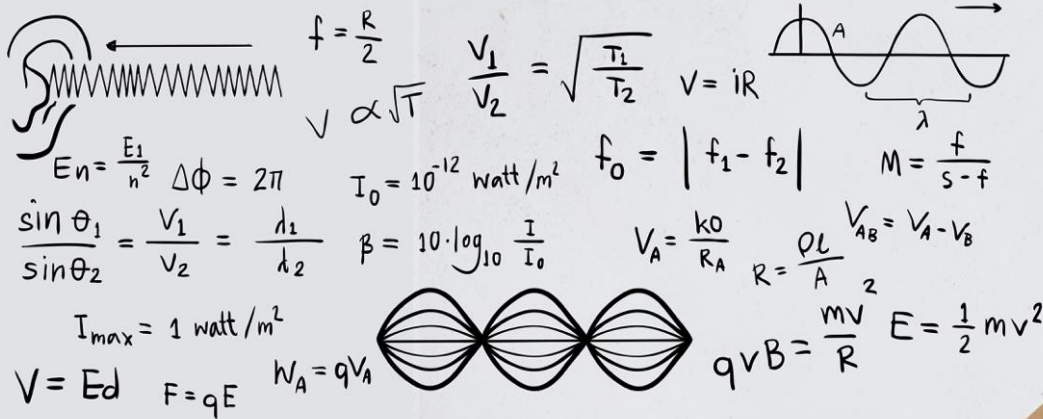 f = R/2
V₁/V₂ = √(T₁/T₂)
V ∝ √T
V = iR
A
λ
En = E₁/n²
Δϕ = 2π
I₀ = 10⁻¹² watt/m²
f₀ = | f₁ - f₂ |
M = f/(s-f)
sin θ₁/sin θ₂ = V₁/V₂ = λ₁/λ₂
β = 10·log₁₀ I/I₀
V_A = kQ/R_A
R = ρl/A
V_AB = V_A - V_B
I_max = 1 watt/m²
qvB = mv²/R
E = ½ mv²
V = Ed
F = qE
W_A = qV_A